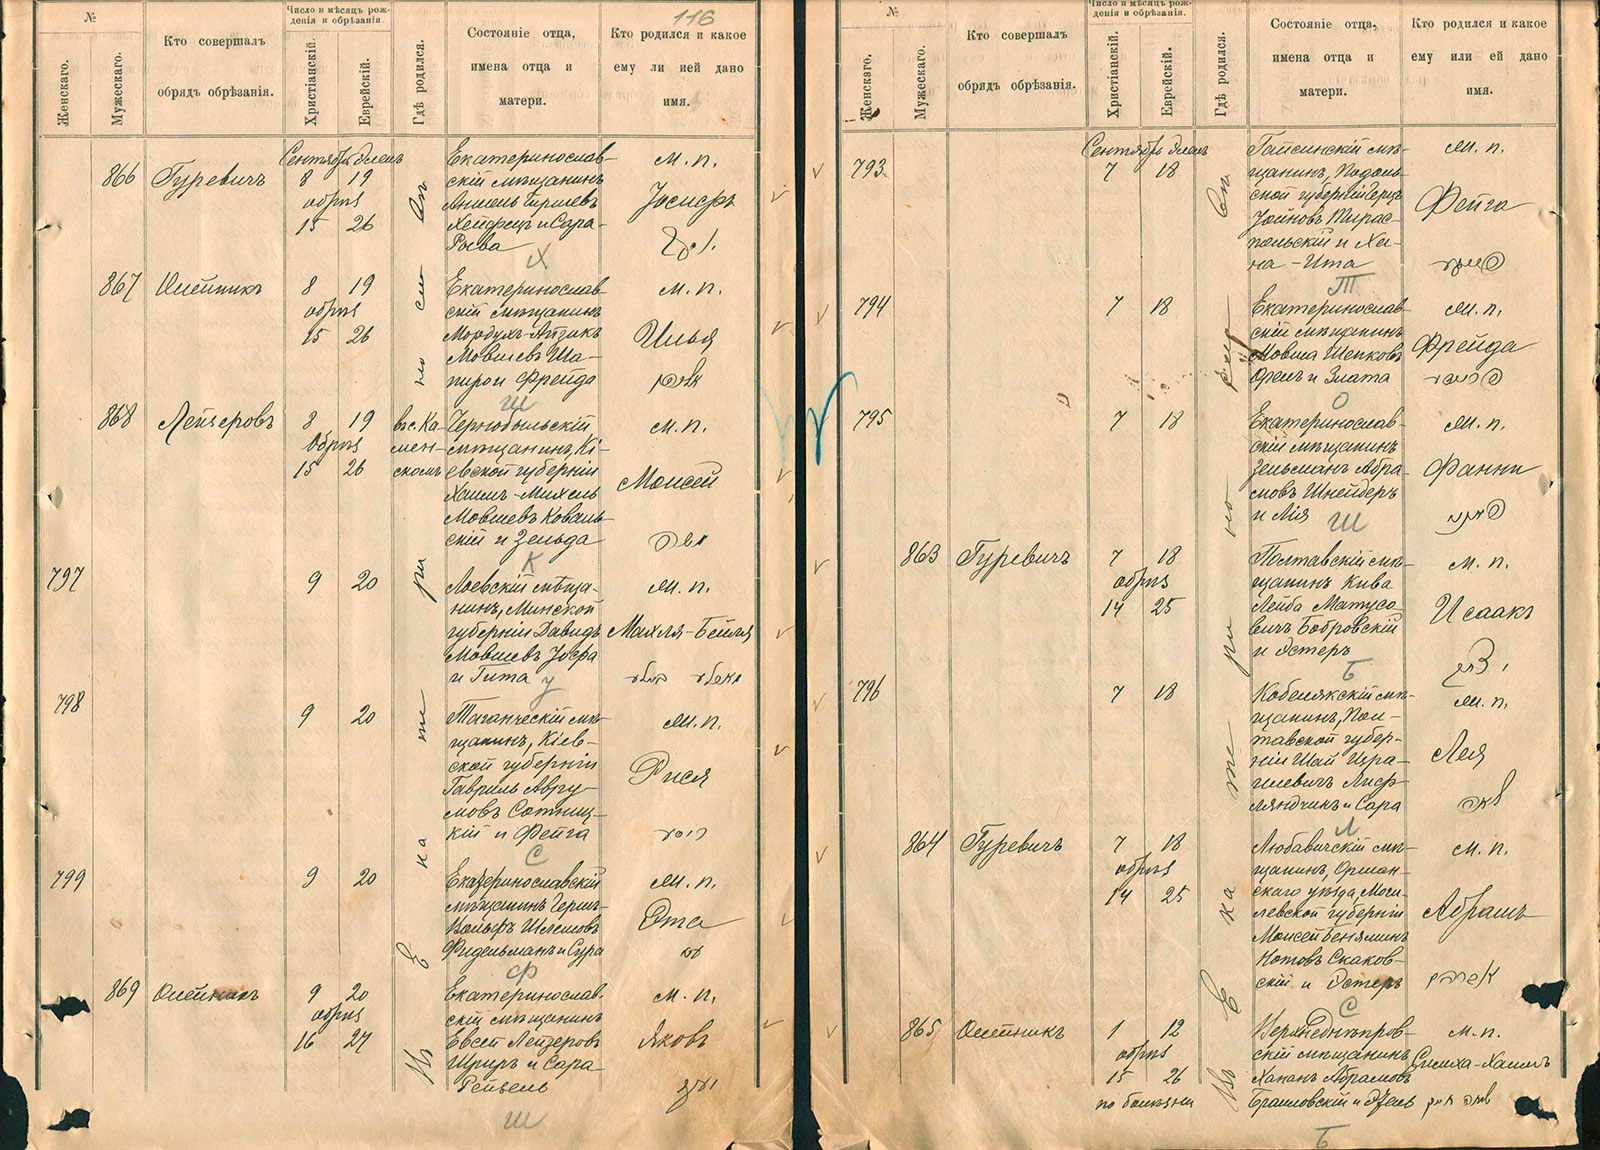 116
№
Женскаго.
Мужескаго.
Кто совершалъ
обрядъ обрѣзанія.
Число и мѣсяцъ рож-
денія и обрѣзанія.
Христіанскій.
Еврейскій.
Гдѣ родился.
Состояніе отца,
имена отца и
матери.
Кто родился и какое
ему ли ией дано
имя.
866
Гуревичъ
Сентябрь Элелъ
8 19
обрѣз
15 26
Екатеринослав-
скій мѣщанинъ
Хейфецъ и Сара-
Рыва
Х
м. п.
Іосифъ
867
Олейникъ
8 19
обрѣз
15 26
Екатеринослав-
скій мѣщанинъ
Мордухъ-Айзикъ
Мовшевъ Ша-
пиро и Фрейда
Ш
м. п.
Илья
868
Лейзеровъ
8 19
обрѣз
15 26
въ с. Ка-
мен-
скомъ
Чернобыльскій
мѣщанинъ, Кі-
евской губерніи
Хаимъ-Михель
Мовшевъ Коваль-
скій и Зельда
К
м. п.
Моисей
משה
797
9 20
Лоевскій мѣща-
нинъ, Минской
губерніи Давидъ
Мовшевъ
и Гита
У
м. п.
Махля-Бейля
798
9 20
Таганческій мѣ-
щанинъ, Кіев-
ской губерніи
Гавриль Авру-
мовъ Сотниц-
кій и Фейга
С
м. п.
Рися
799
9 20
Екатеринославскій
мѣщанинъ Герш-
Вольфъ Шлемовъ
Фидельманъ и Сура
Ф
м. п.
Эта
869
Олейникъ
9 20
обрѣз
16 27
Екатеринослав-
скій мѣщанинъ
Евсей Лейзеровъ
и Сара
Рейзель
Ш
м. п.
Яковъ
יעקב
Въ Екатеринославѣ
№
Женскаго.
Мужескаго.
Кто совершалъ
обрядъ обрѣзанія.
Число и мѣсяцъ рож-
денія и обрѣзанія.
Христіанскій.
Еврейскій.
Гдѣ родился.
Состояніе отца,
имена отца и
матери.
Кто родился и какое
ему или ей дано
имя.
793
Сентябрь Элелъ
7 18
Гайсинскій мѣ-
щанинъ, Подоль-
ской губерніи
Тирас-
польскій и Ха-
на-Ита
Т
м. п.
Фейга
794
7 18
Екатеринослав-
скій мѣщанинъ
Мовша
и Злата
О
м. п.
Фрейда
795
7 18
Екатеринослав-
скій мѣщанинъ
Зельманъ Абра-
мовъ Шнейдеръ
и Лія
Ш
м. п.
Фанни
863
Гуревичъ
7 18
обрѣз
14 25
Полтавскій мѣ-
щанинъ Кива
Лейба Матусо-
вичъ Бобровскій
и Эстеръ
Б
м. п.
Исаакъ
796
7 18
Кобелякскій мѣ-
щанинъ, Пол-
тавской губер-
ніи Шай Изра-
илевичъ Лифр-
ляндчикъ и Сара
Л
м. п.
Лея
864
Гуревичъ
7 18
обрѣз
14 25
Любавичскій мѣ-
щанинъ, Оршан-
скаго уѣзда, Моги-
левской губерніи
Моисей Беняминъ
Скаков-
скій и Эстеръ
С
м. п.
Абрамъ
אברהם
865
Олейникъ
1 12
обрѣз
15 26
по болѣзни
Верхнеднѣпров-
скій мѣщанинъ
Хананъ Абрамовъ
Браиловскій и
Б
м. п.
Симха-Хаимъ
שמחה חיים
Въ Екатеринославѣ